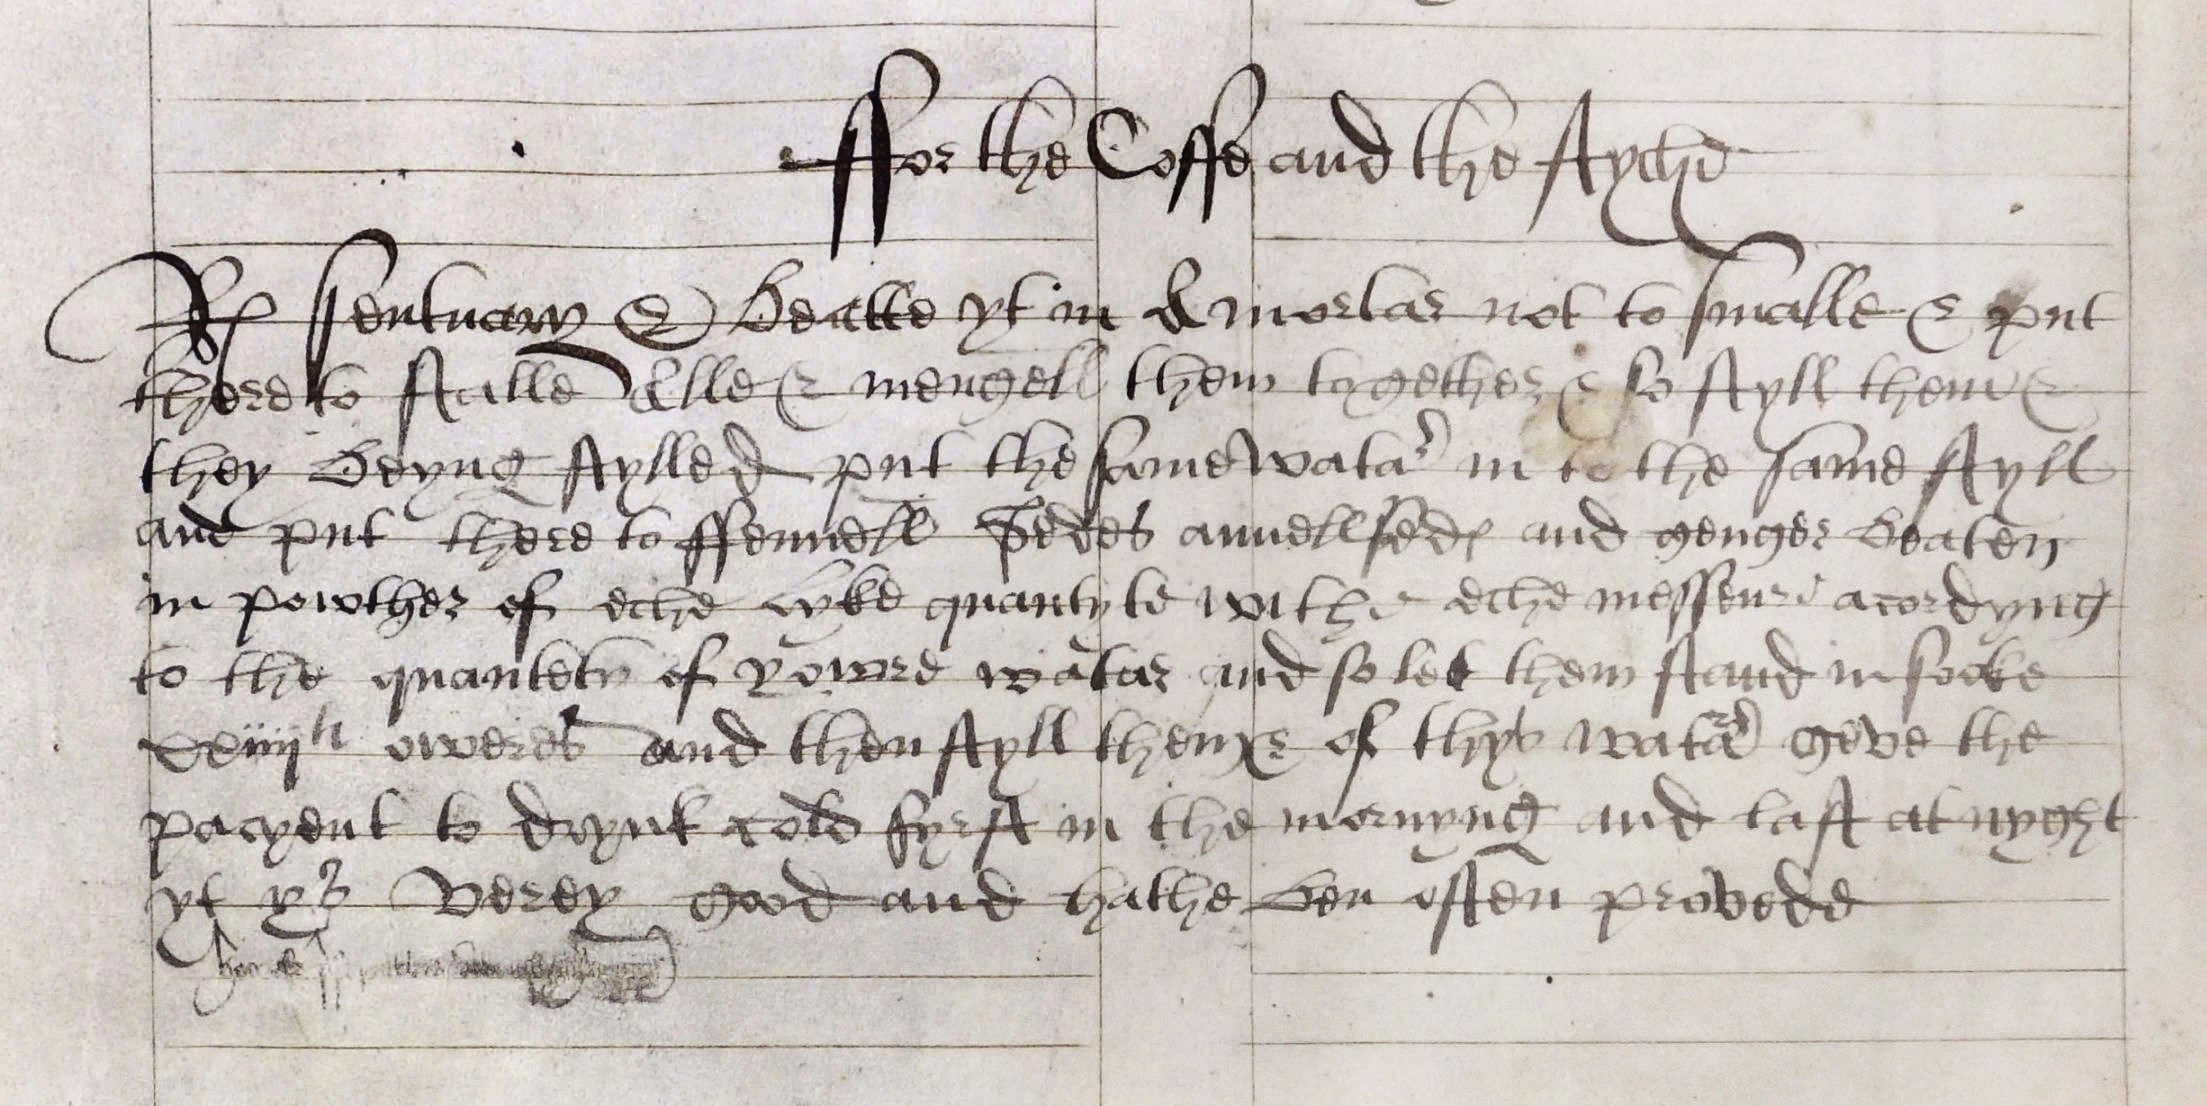 ffor the Coffe and the stytche
Rx sentuary & beatte yt in A mortar not to smalle & put
there to stalle Alle & mengell them together & so styll them &
they beyng stylled put the same watar in to the same styll
and put there to ffennell sedes annell sedes and genger beaten
in powther of eche lyke quantyte withe eche messeure acordyng
to the quantety of yowre watar and so let them stand in soke
xxiiijti oweres and then styll them & of thys watar geve the
pacyent to drynk cold fyrst in the mornyng and last at nyght
yt ys verey good and hathe ben often provede